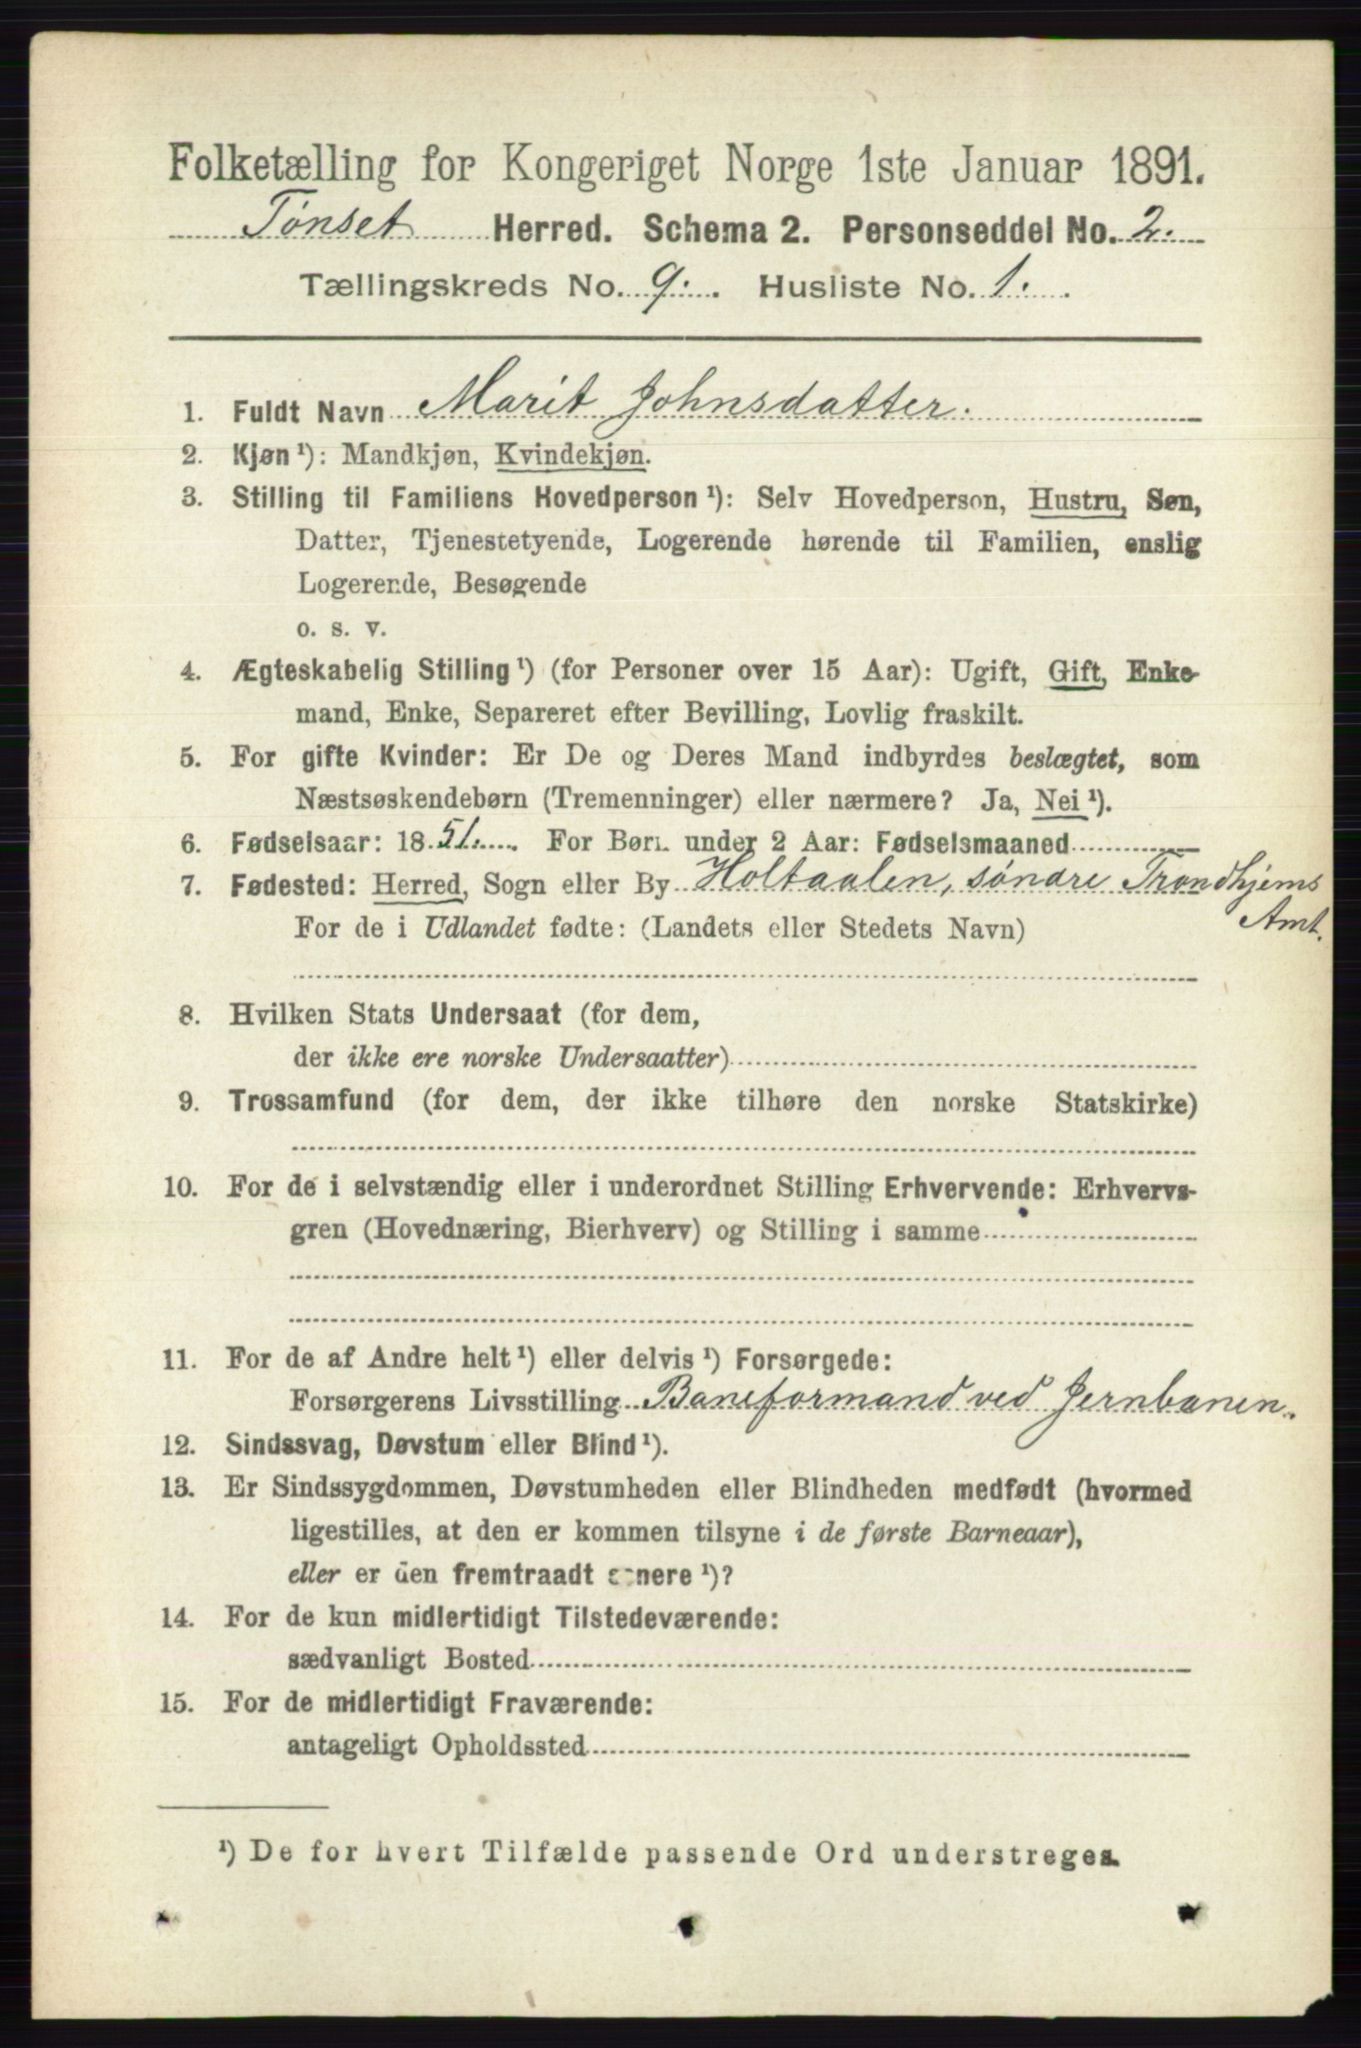 Folketælling for Kongeriget Norge 1ste Januar 1891.
Tønset Herred. Schema 2. Personseddel No. 2.
Tællingskreds No. 9. Husliste No. 1.
1. Fuldt Navn Marit Johnsdatter.
2. Kjøn ¹): Mandkjøn, Kvindekjøn.
3. Stilling til Familiens Hovedperson ¹): Selv Hovedperson, Hustru, Søn,
Datter, Tjenestetyende, Logerende hørende til Familien, enslig
Logerende, Besøgende
o. s. v.
4. Ægteskabelig Stilling ¹) (for Personer over 15 Aar): Ugift, Gift, Enke-
mand, Enke, Separeret efter Bevilling, Lovlig fraskilt.
5. For gifte Kvinder: Er De og Deres Mand indbyrdes beslægtet, som
Næstsøskendebørn (Tremenninger) eller nærmere? Ja, Nei ¹).
6. Fødselsaar: 1851. For Børn under 2 Aar: Fødselsmaaned
7. Fødested: Herred, Sogn eller By Holtaalen, søndre Trondhjems
Amt.
For de i Udlandet fødte: (Landets eller Stedets Navn)
8. Hvilken Stats Undersaat (for dem,
der ikke ere norske Undersaatter)
9. Trossamfund (for dem, der ikke tilhøre den norske Statskirke)
10. For de i selvstændig eller i underordnet Stilling Erhvervende: Erhvervs-
gren (Hovednæring, Bierhverv) og Stilling i samme
11. For de af Andre helt ¹) eller delvis ¹) Forsørgede:
Forsørgerens Livsstilling Baneformand ved Jernbanen.
12. Sindssvag, Døvstum eller Blind ¹).
13. Er Sindssygdommen, Døvstumheden eller Blindheden medfødt (hvormed
ligestilles, at den er kommen tilsyne i de første Barneaar),
eller er den fremtraadt senere ¹)?
14. For de kun midlertidigt Tilstedeværende:
sædvanligt Bosted
15. For de midlertidigt Fraværende:
antageligt Opholdssted
¹) De for hvert Tilfælde passende Ord understreges.